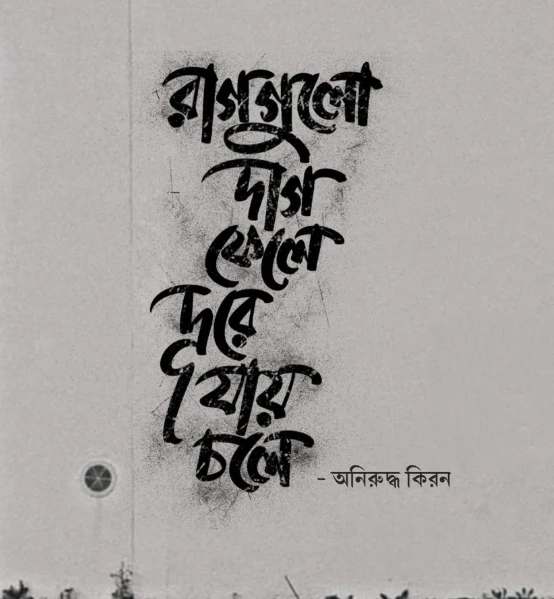 রাগগুলো
দাগ
ফেলে
দূরে
যায়
চলে
- অনিরুদ্ধ কিরন